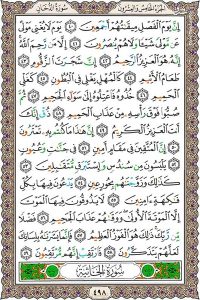 الجزء الخامس والعشرون سورة الدخان
إِنَّ يَوْمَ الْفَصْلِ مِيقَاتُهُمْ أَجْمَعِينَ ٤٠ يَوْمَ لَا يُغْنِي مَوْلًى
عَن مَّوْلًى شَيْئًا وَلَا هُمْ يُنصَرُونَ ٤١ إِلَّا مَن رَّحِمَ اللَّهُ
إِنَّهُ هُوَ الْعَزِيزُ الرَّحِيمُ ٤٢ إِنَّ شَجَرَتَ الزَّقُّومِ ٤٣
طَعَامُ الْأَثِيمِ ٤٤ كَالْمُهْلِ يَغْلِي فِي الْبُطُونِ ٤٥ كَغَلْيِ
الْحَمِيمِ ٤٦ خُذُوهُ فَاعْتِلُوهُ إِلَىٰ سَوَاءِ الْجَحِيمِ ٤٧ ثُمَّ
صُبُّوا فَوْقَ رَأْسِهِ مِنْ عَذَابِ الْحَمِيمِ ٤٨ ذُقْ إِنَّكَ
أَنتَ الْعَزِيزُ الْكَرِيمُ ٤٩ إِنَّ هَٰذَا مَا كُنتُم بِهِ تَمْتَرُونَ ٥٠
إِنَّ الْمُتَّقِينَ فِي مَقَامٍ أَمِينٍ ٥١ فِي جَنَّاتٍ وَعُيُونٍ ٥٢
يَلْبَسُونَ مِن سُندُسٍ وَإِسْتَبْرَقٍ مُّتَقَابِلِينَ ٥٣
كَذَٰلِكَ وَزَوَّجْنَاهُم بِحُورٍ عِينٍ ٥٤ يَدْعُونَ فِيهَا بِكُلِّ
فَاكِهَةٍ آمِنِينَ ٥٥ لَا يَذُوقُونَ فِيهَا الْمَوْتَ
إِلَّا الْمَوْتَةَ الْأُولَىٰ وَوَقَاهُمْ عَذَابَ الْجَحِيمِ ٥٦ فَضْلًا
مِّن رَّبِّكَ ذَٰلِكَ هُوَ الْفَوْزُ الْعَظِيمُ ٥٧ فَإِنَّمَا يَسَّرْنَاهُ بِلِسَانِكَ
لَعَلَّهُمْ يَتَذَكَّرُونَ ٥٨ فَارْتَقِبْ إِنَّهُم مُّرْتَقِبُونَ ٥٩
سُورَةُ الْجَاثِيَةِ
٤٩٨